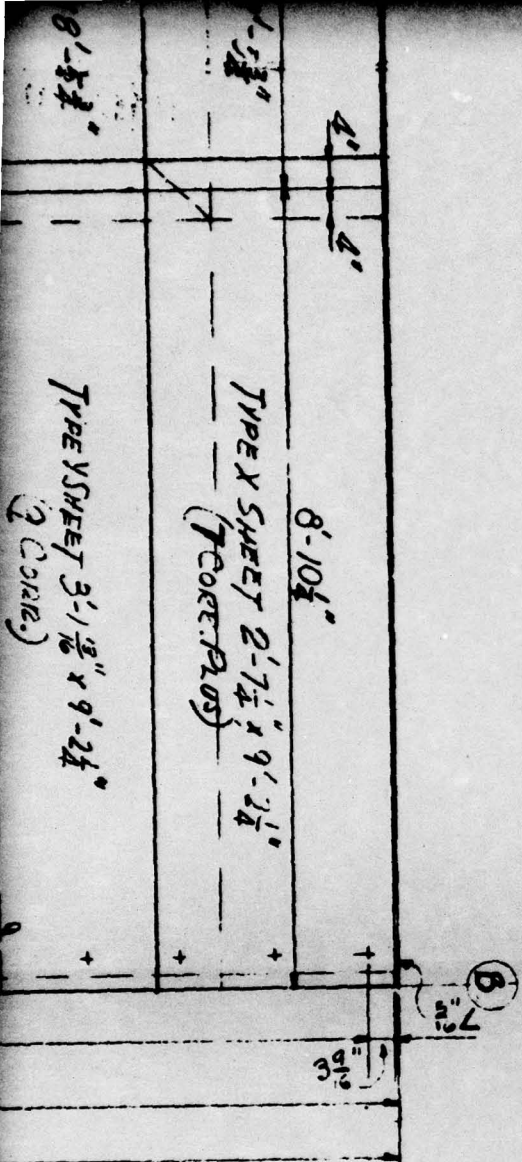 8'-5 3/4"
4"
4"
8'-10 1/4"
TYPE X SHEET 2'-7 1/4" x 9'-2 1/4"
(7 CORR. PLUS)
TYPE Y SHEET 3'-1 13/16" x 9'-2 1/4"
B
3 9/16"